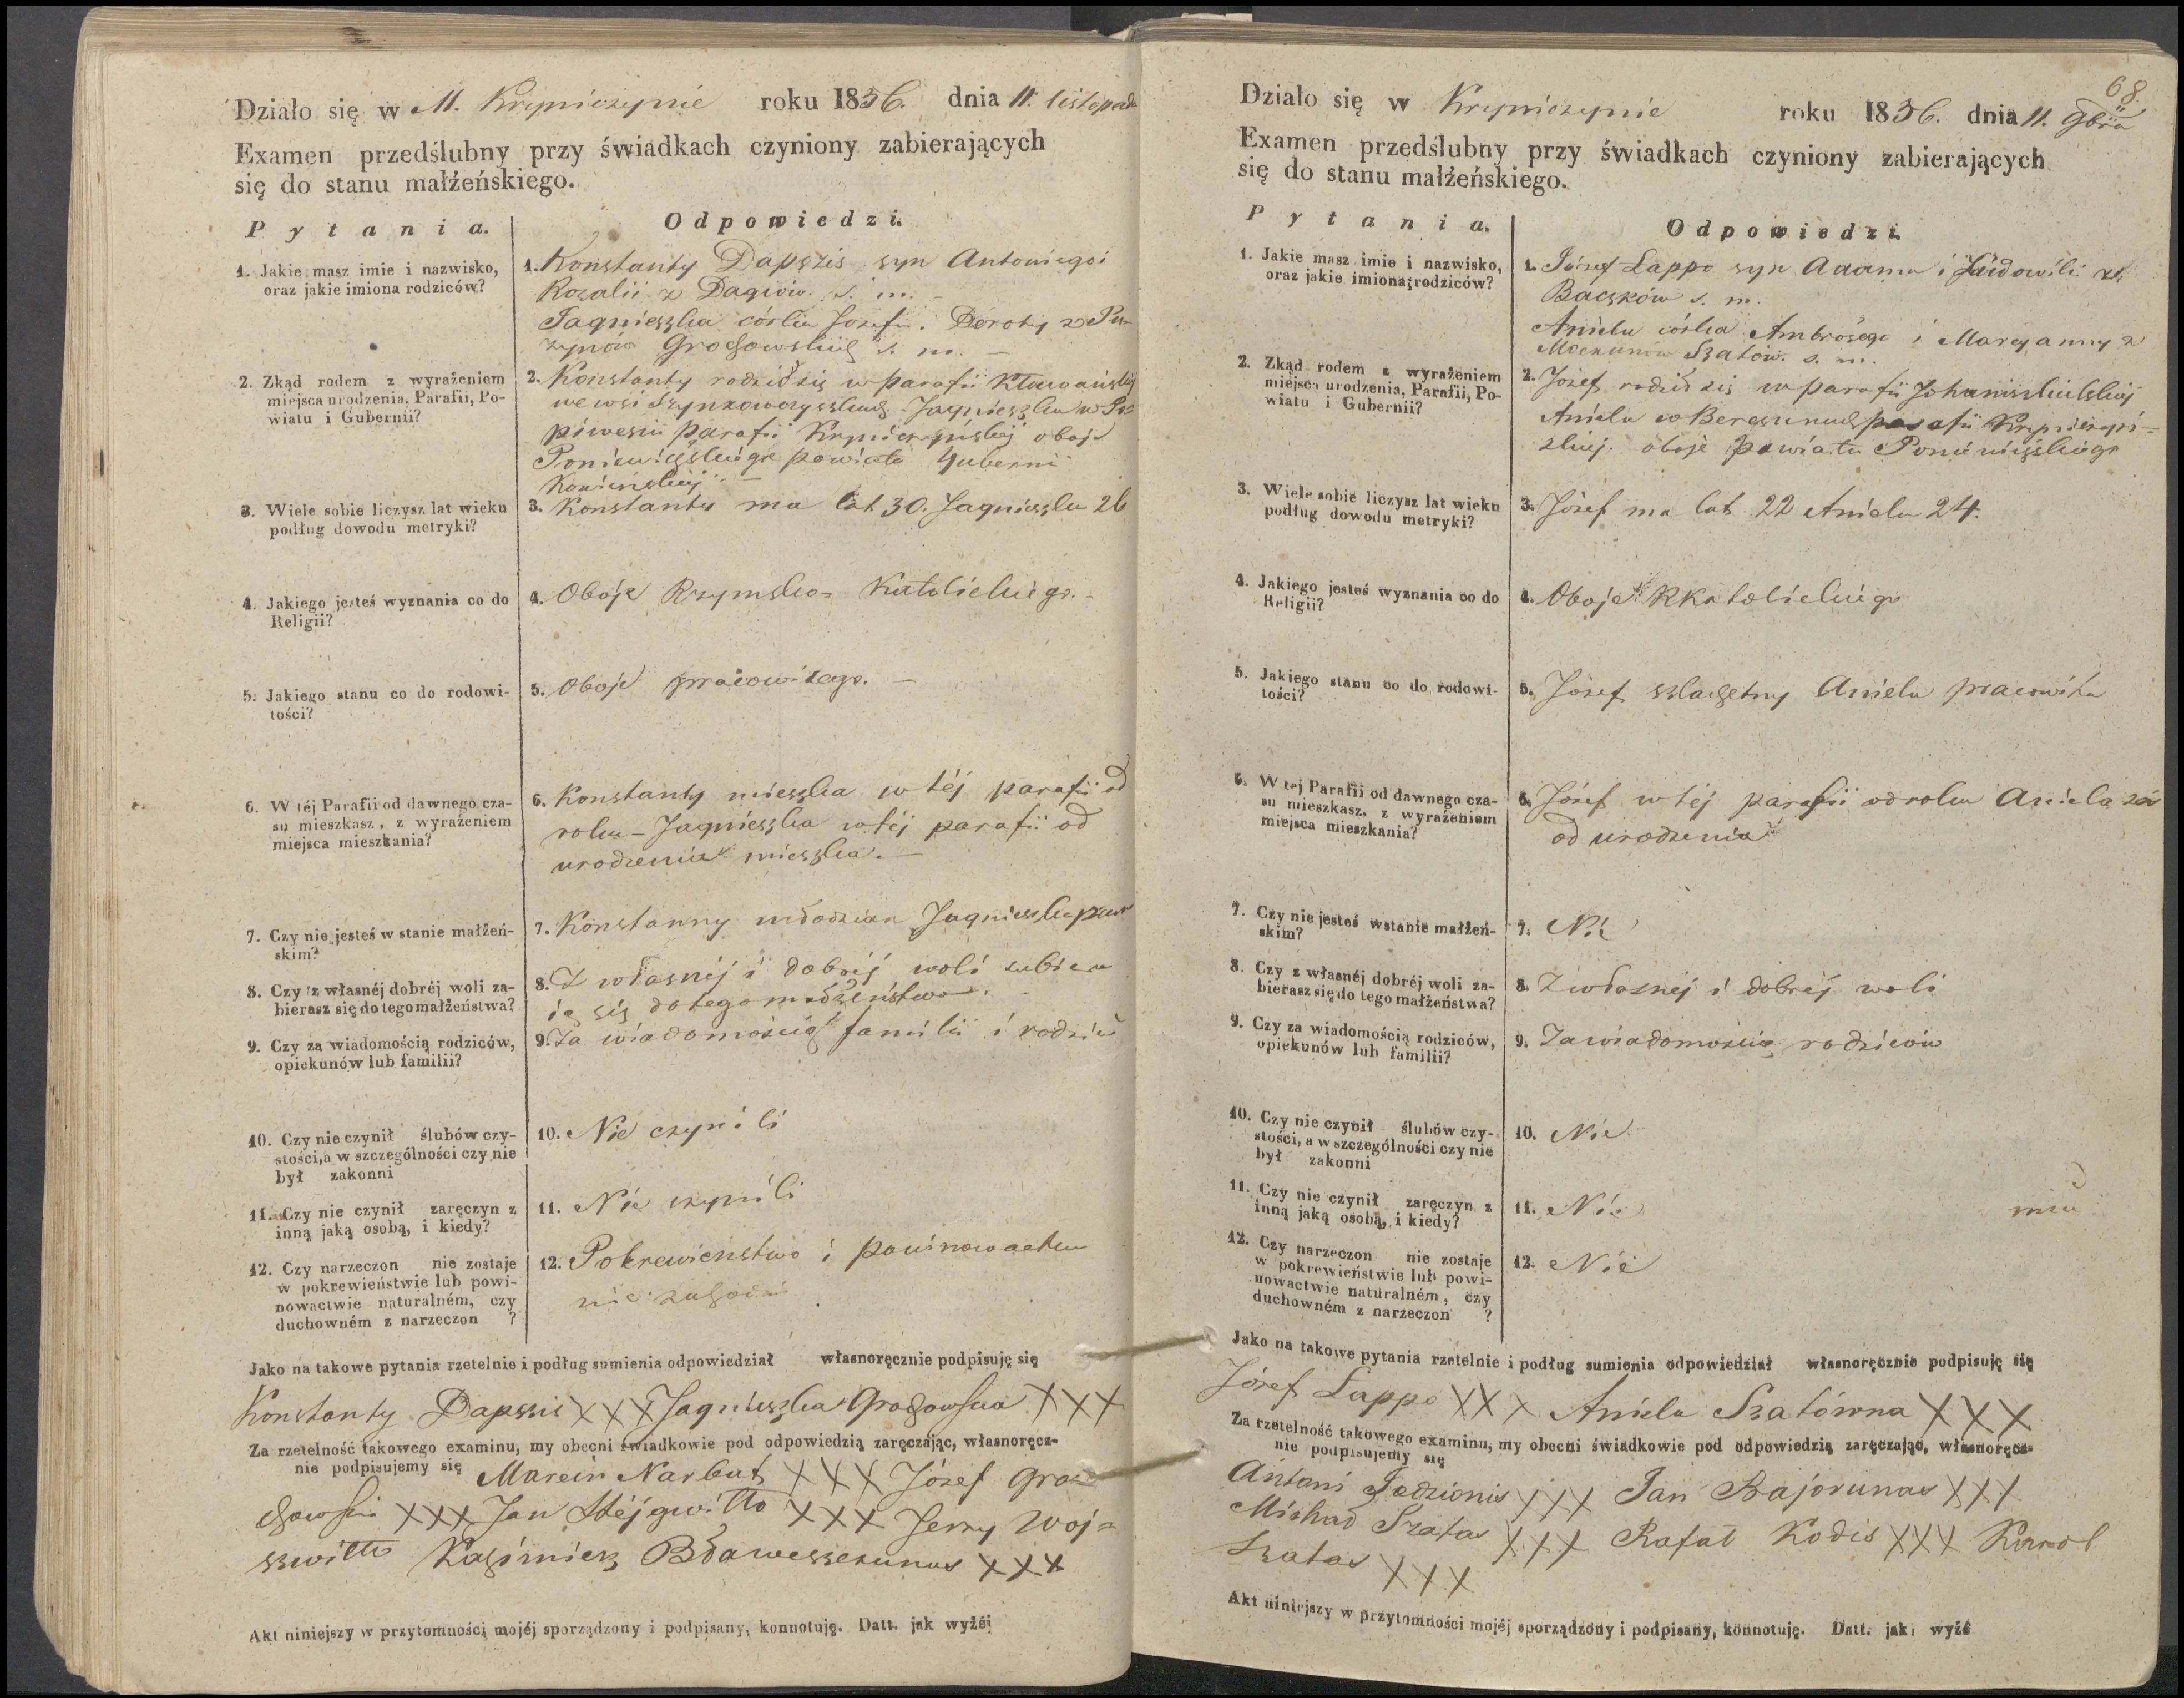 Działo się w M. Kryniczynie roku 1856. dnia 11. listopada
Examen przedślubny przy świadkach czyniony zabierających
się do stanu małżeńskiego.
Pytania.
Odpowiedzi.
1. Jakie masz imie i nazwisko,
oraz jakie imiona rodziców?
1. Konstanty Dapszis syn Antoniego i
Rozalii z Dagiów s. m.
Jagnieszka córka Józefa i Doroty z Pu-
zynów Grochowskich s. m.
2. Zkąd rodem z wyrażeniem
miejsca urodzenia, Parafii, Po-
wiatu i Gubernii?
2. Konstanty rodził się w parafii Kławańskiej
we wsi Jagnieszka w Po-
piwesiu parafii Kryniczyńskiej oboje
Poniewiezskiego powiatu Gubernii
Kowieńskiej
3. Wiele sobie liczysz lat wieku
podług dowodu metryki?
3. Konstanty ma lat 30. Jagnieszka 26
4. Jakiego jesteś wyznania co do
Religii?
4. Oboje Rzymsko-Katolickiego.
5. Jakiego stanu co do rodowi-
tości?
5. Oboje pracowitego.
6. W téj Parafii od dawnego cza-
su mieszkasz, z wyrażeniem
miejsca mieszkania?
6. Konstanty mieszka w téj parafii od
roku - Jagnieszka w téj parafii od
urodzenia mieszka.
7. Czy nie jesteś w stanie małżeń-
skim?
7. Konstanny młodzian Jagnieszka
8. Czy z własnéj dobréj woli za-
bierasz się do tego małżeństwa?
8. Z własnéj i dobréj woli zabiera
ią się do tego małżeństwa.
9. Czy za wiadomością rodziców,
opiekunów lub familii?
9. Za wiadomością familii i rodzic
10. Czy nie czynił ślubów czy-
stości, a w szczególności czy nie
był zakonni
10. Nie czynili
11. Czy nie czynił zaręczyn z
inną jaką osobą, i kiedy?
11. Nie czynili
12. Czy narzeczon nie zostaje
w pokrewieństwie lub powi-
nowactwie naturalném, czy
duchowném z narzeczon ?
12. Pokrewienstwo i powinowactwo
nie zachodzi
Jako na takowe pytania rzetelnie i podług sumienia odpowiedział własnoręcznie podpisuję się
Konstanty Dapszis XXX Jagnieszka Grochowska XXX
Za rzetelność takowego examinu, my obecni świadkowie pod odpowiedzią zaręczając, własnoręcz-
nie podpisujemy się Marcin Narbut XXX Józef Gro-
chowski XXX Jan Mejgwitto XXX Jerzy Woj-
szwitto Kazimierz XXX
Akt niniejszy w przytomności mojéj sporządzony i podpisany, konnotuję. Datt. jak wyżéj
68.
Działo się w Kryniczynie roku 1856. dnia 11. 9bra
Examen przedślubny przy świadkach czyniony zabierających
się do stanu małżeńskiego.
Pytania.
Odpowiedzi.
1. Jakie masz imie i nazwisko,
oraz jakie imiona rodziców?
1. Józef Lappo syn Adama i z
Baczków s. m.
Aniela córka Ambrożego i Maryanny z
Mockunów Szatów. s. m.
2. Zkąd rodem z wyrażeniem
miejsca urodzenia, Parafii, Po-
wiatu i Gubernii?
2. Józef rodził się w parafii Johaniszkielskiej
Aniela w parafii Kryniczyń-
skiej. oboje powiatu Poniewiezskiego
3. Wiele sobie liczysz lat wieku
podług dowodu metryki?
3. Józef ma lat 22 Aniela 24.
4. Jakiego jesteś wyznania co do
Religii?
4. Oboje RKatolickiego
5. Jakiego stanu co do rodowi-
tości?
5. Józef szlachetny Aniela pracowita
6. W tej Parafii od dawnego cza-
su mieszkasz, z wyrażeniem
miejsca mieszkania?
6. Józef w téj parafii od roku Aniela zaś
od urodzenia
7. Czy nie jesteś w stanie małżeń-
skim?
7. Nie
8. Czy z własnéj dobréj woli za-
bierasz się do tego małżeństwa?
8. Z własnéj i dobréj woli
9. Czy za wiadomością rodziców,
opiekunów lub familii?
9. Za wiadomością rodziców
10. Czy nie czynił ślubów czy-
stości, a w szczególności czy nie
był zakonni
10. Nie
11. Czy nie czynił zaręczyn z
inną jaką osobą, i kiedy?
11. Nie
12. Czy narzeczon nie zostaje
w pokrewieństwie lub powi-
nowactwie naturalném, czy
duchowném z narzeczon ?
12. Nie
Jako na takowe pytania rzetelnie i podług sumienia odpowiedział własnoręcznie podpisuję się
Józef Lappo XXX Aniela Szatówna XXX
Za rzetelność takowego examinu, my obecni świadkowie pod odpowiedzią zaręczając, własnoręcz-
nie podpisujemy się
Antoni Jodzionis XXX Jan Bajorunas XXX
Michał Szatas XXX Rafał Kodis XXX Karol
Szatas XXX
Akt niniejszy w przytomności mojéj sporządzony i podpisany, konnotuję. Datt. jak wyżé